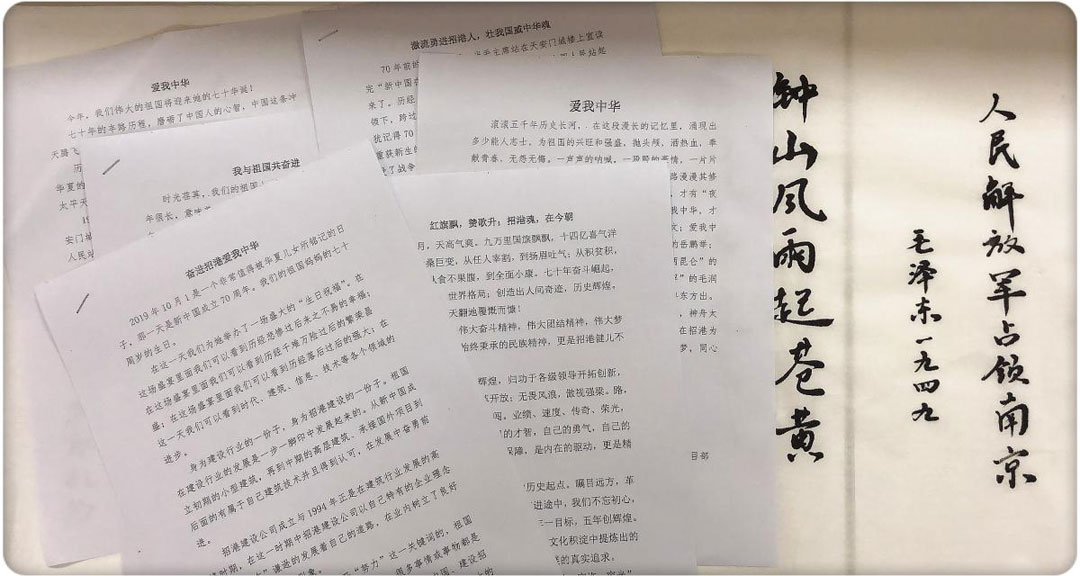 爱我中华
今年，我们伟大的祖国将迎来她的七十华诞！
七十年的丰路历程，磨砺了中国人的心智，中国这条冲
天腾飞
华夏的
太平天
安门城
人民站
激流勇进招港人，壮我国威中华魂
70年前的
主席站在天安门城楼上宣读
完“新中国
来了。历经
领下，跨过
犹记得70
重获新生的
我与祖国共奋进
时光荏苒，我们的祖国
年很长，意味着
爱我中华
滚滚五千年历史长河，在这段漫长的记忆里，涌现出
多少能人志士，为祖国的兴旺和强盛，抛头颅，洒热血，奉
献青春，无怨无悔，一声声的呐喊，一段段的豪情，一片片
路漫漫其修
，才有“夜
我中华，才
文；爱我中
的岳鹏举；
昆仑”的
”的毛润
东方出。
，神舟太
在招港为
梦，同心
目部
红旗飘，赞歌升；招港魂，在今朝
月，天高气爽。九万里国旗飘飘，十四亿喜气洋
桑巨变，从任人宰割，到扬眉吐气；从积贫积，
从食不果腹，到全面小康。七十年奋斗崛起，
世界格局；创造出人间奇迹，历史辉煌。
天翻地覆慨而慷！
伟大奋斗精神，伟大团结精神，伟大梦
始终秉承的民族精神，更是招港健儿不
辉煌，归功于各级领导开拓创新，
开放；无畏风浪，傲视强梁。路，
闯，业绩、速度、传奇、荣光，
的才智，自己的勇气，自己的
保障，是内在的驱动，更是精
历史起点，瞩目远方，革
进途中，我们不忘初心，
三一目标，五年创辉煌。
文化积淀中提炼出的
的真实追求。
奋进招港爱我中华
2019年10月1是一个非常值得被华夏儿女所铭记的日
子，那一天是新中国成立70周年。我们的祖国妈妈的七十
周岁的生日。
在这一天我们为她举办了一场盛大的“生日祝福”。在
这场盛宴里面我们可以看到历经悲惨过后来之不易的幸福；
在这场盛宴里面我们可以看到历经千难万险过后的繁荣昌
盛；在这场盛宴里面我们可以看到历经落后过后的强大；在
这一天我们可以看到时代、建筑、信息、技术等各个领域的
进步。
身为建设行业的一份子，身为招港建设的一份子。祖国
在建设行业的发展是一步一脚印中发展起来的。从新中国成
立初期的小型建筑，再到中期的高层建筑、承接国外项目到
后面的有属于自己建筑技术并且得到认可，在发展中奋勇前
进。
招港建设公司成立与1994年正是在建筑行业发展的高
速时期，在这一时期中招港建设公司以自己特有的企业理念
谦逊的发展着自己的道路，在业内树立了良好
“努力”这一关键词的，祖国
很多事情或事物都是
钟山风雨起苍黄
人民解放军占领南京
毛泽东一九四九